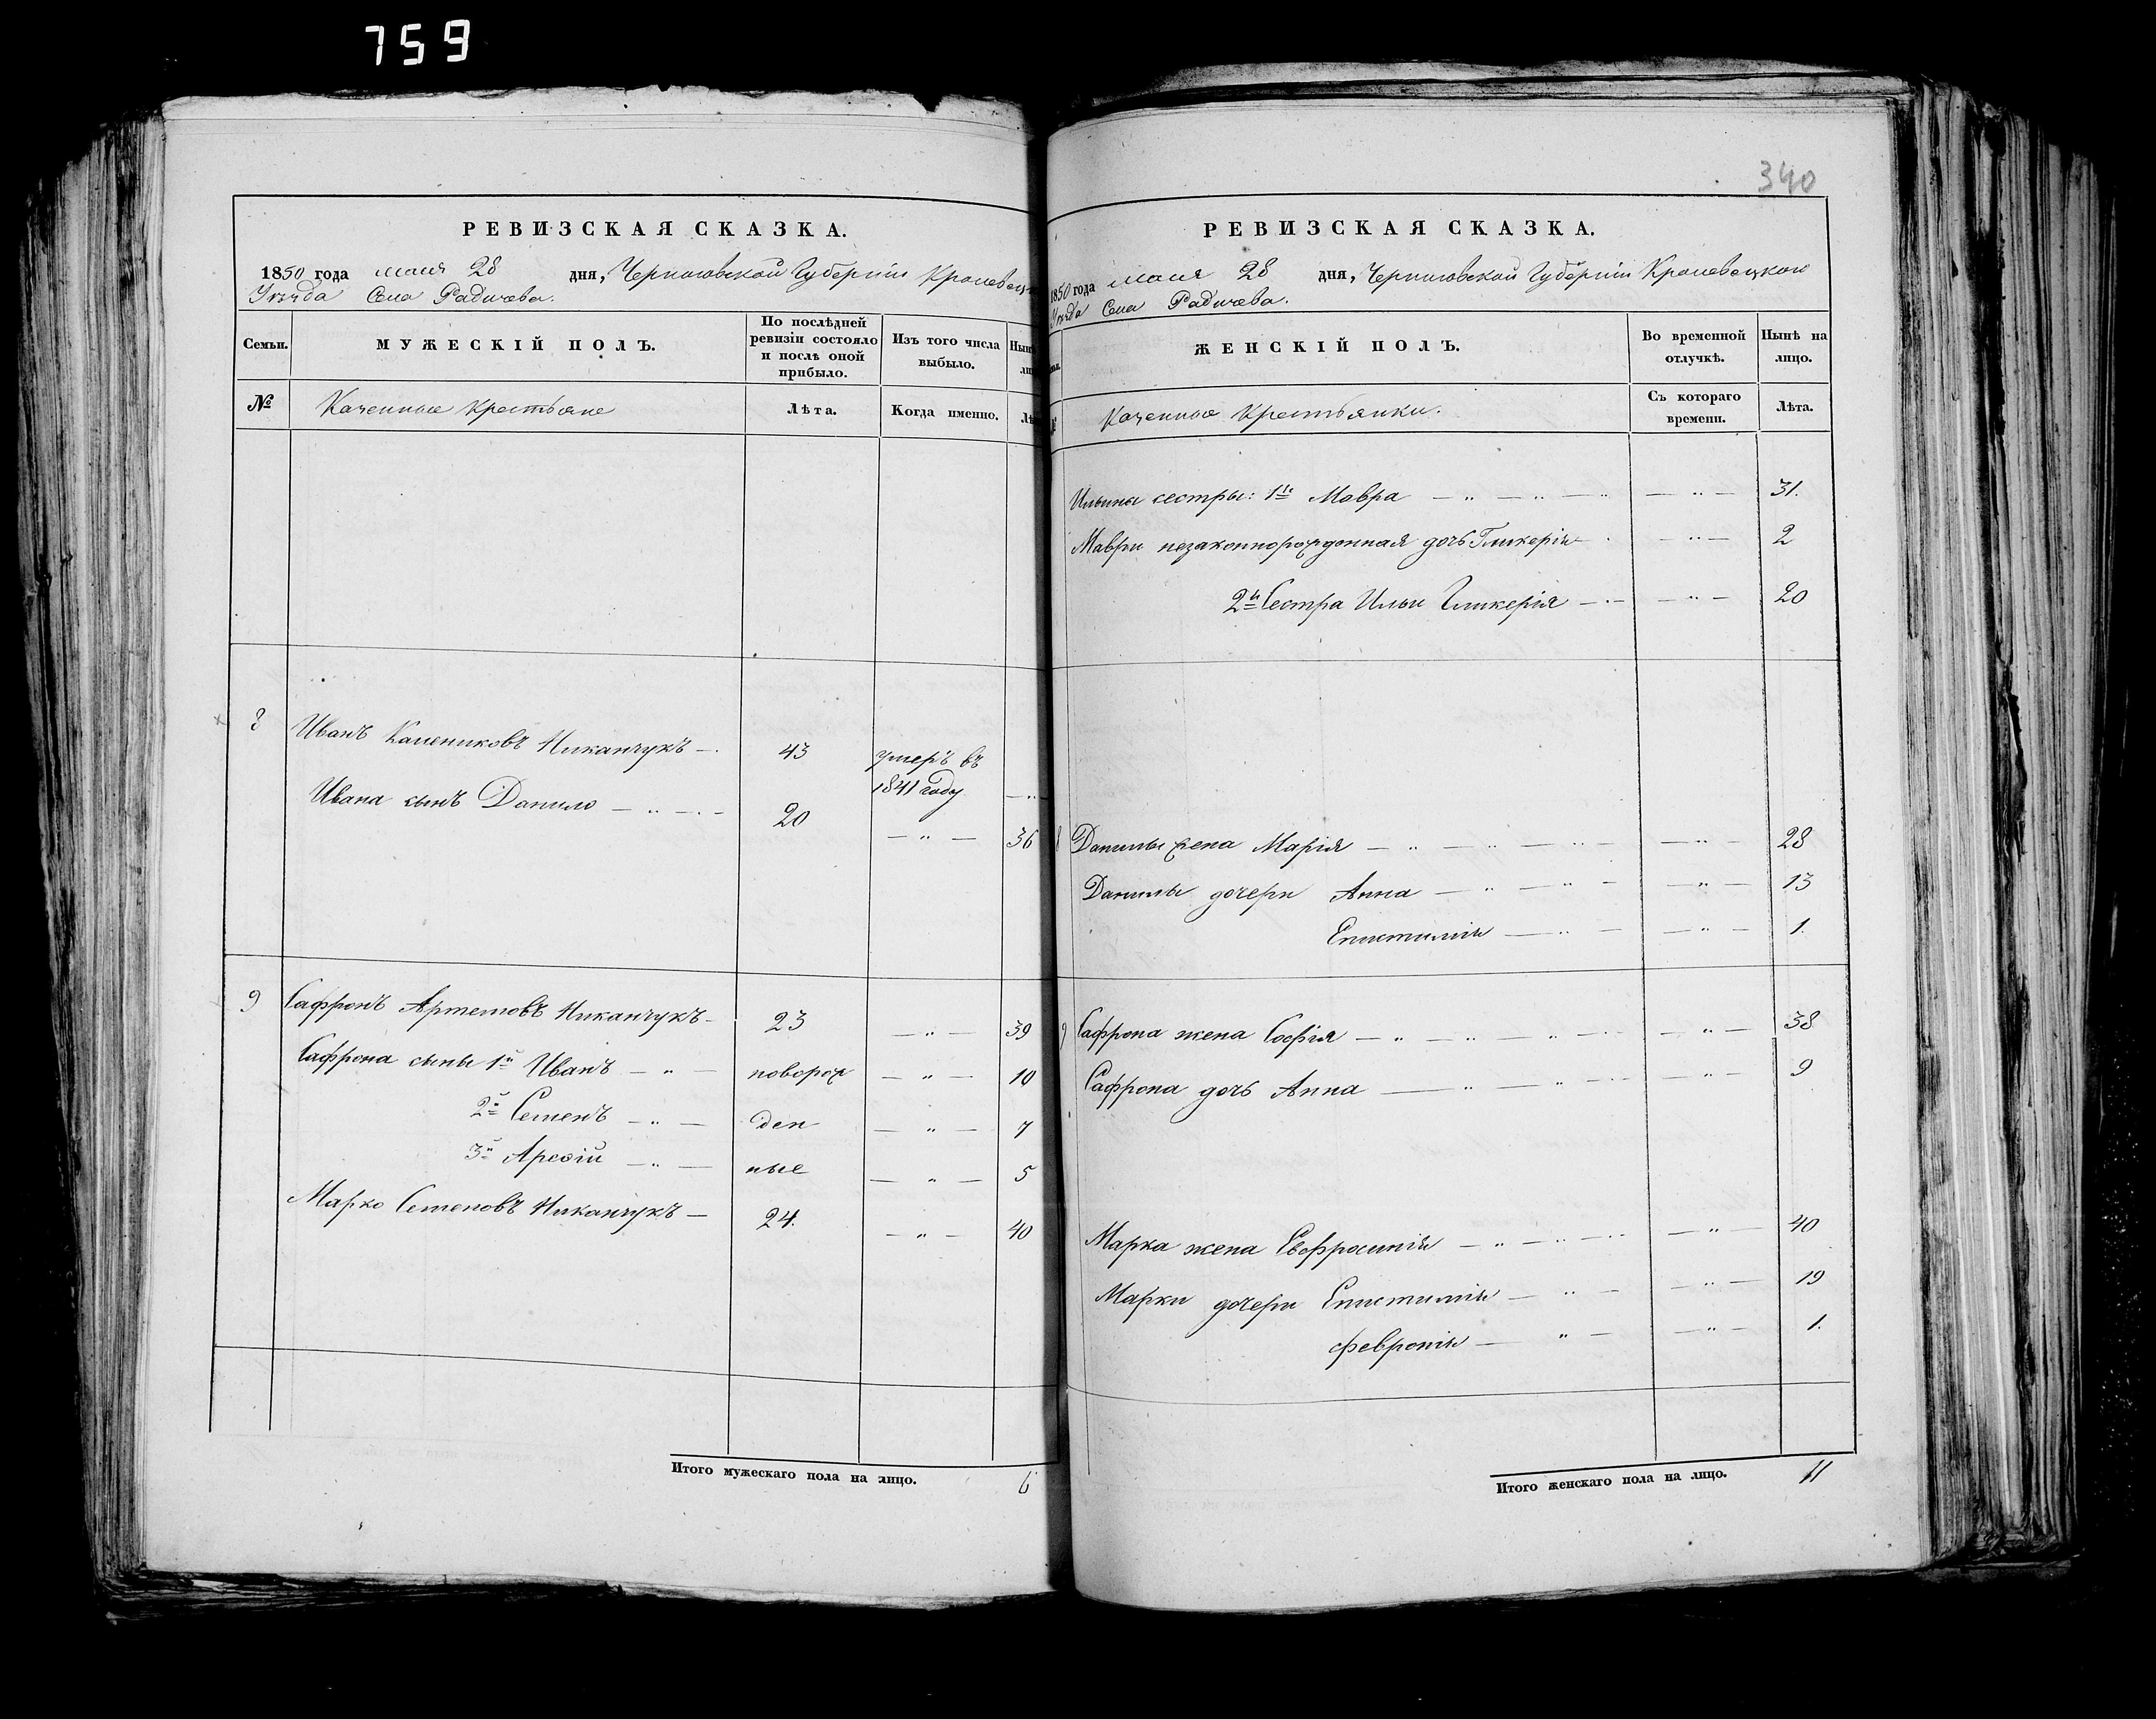 759
340
РЕВИЗСКАЯ СКАЗКА.
1850 года маия 28 дня, Черниговской Губерніи Кролевец
Уѣзда Села Радичева.
Семьи.
МУЖЕСКІЙ ПОЛЪ.
По послѣдней
ревизіи состояло
и послѣ оной
прибыло.
Изъ того числа
выбыло.
Нынѣ
ли
№
Казенные Крестьяне
Лѣта.
Когда именно.
Лѣ
8 Иванъ Калениковъ Никанчукъ — 43 умеръ въ
1841 году — " —
Ивана сынъ Данило — " — 20 — " — 36
9 Сафронъ Артемовъ Никанчукъ 23 — " — 39
Сафрона сыны 1й Иванъ — " — новорож — " — 10
2й Семенъ — " — ден — " — 7
3й Арсѳій — " — ные — " — 5
Марко Семеновъ Никанчукъ — 24. — " — 40
Итого мужескаго пола на лицо. 6
РЕВИЗСКАЯ СКАЗКА.
1850 года маия 28 дня, Черниговской Губерніи Кролевецкой
Уѣзда Села Радичева.
ЖЕНСКІЙ ПОЛЪ.
Во временной
отлучкѣ.
Нынѣ на
лицо.
Казенные Крестьянки.
Съ котораго
времени.
Лѣта.
Ильины сестры: 1я Мавра — " — " — — " — 31.
Маври незаконнорожденная дочь Гликерія — " — 2
2я Сестра Ильи Гликерія — " — 20
8 Данилы жена Марія — " — " — " — — " — 28
Данилы дочери Анна — " — " — — " — 13
Епистимія — " — — " — 1.
9 Сафрона жена Софія — " — " — " — — " — 38
Сафрона дочь Анна — " — " — — " — 9
Марка жена Евфросинія — " — " — — " — 40
Марки дочери Епистимія — " — — " — 19
Февронія — " — — " — 1.
Итого женскаго пола на лицо. 11